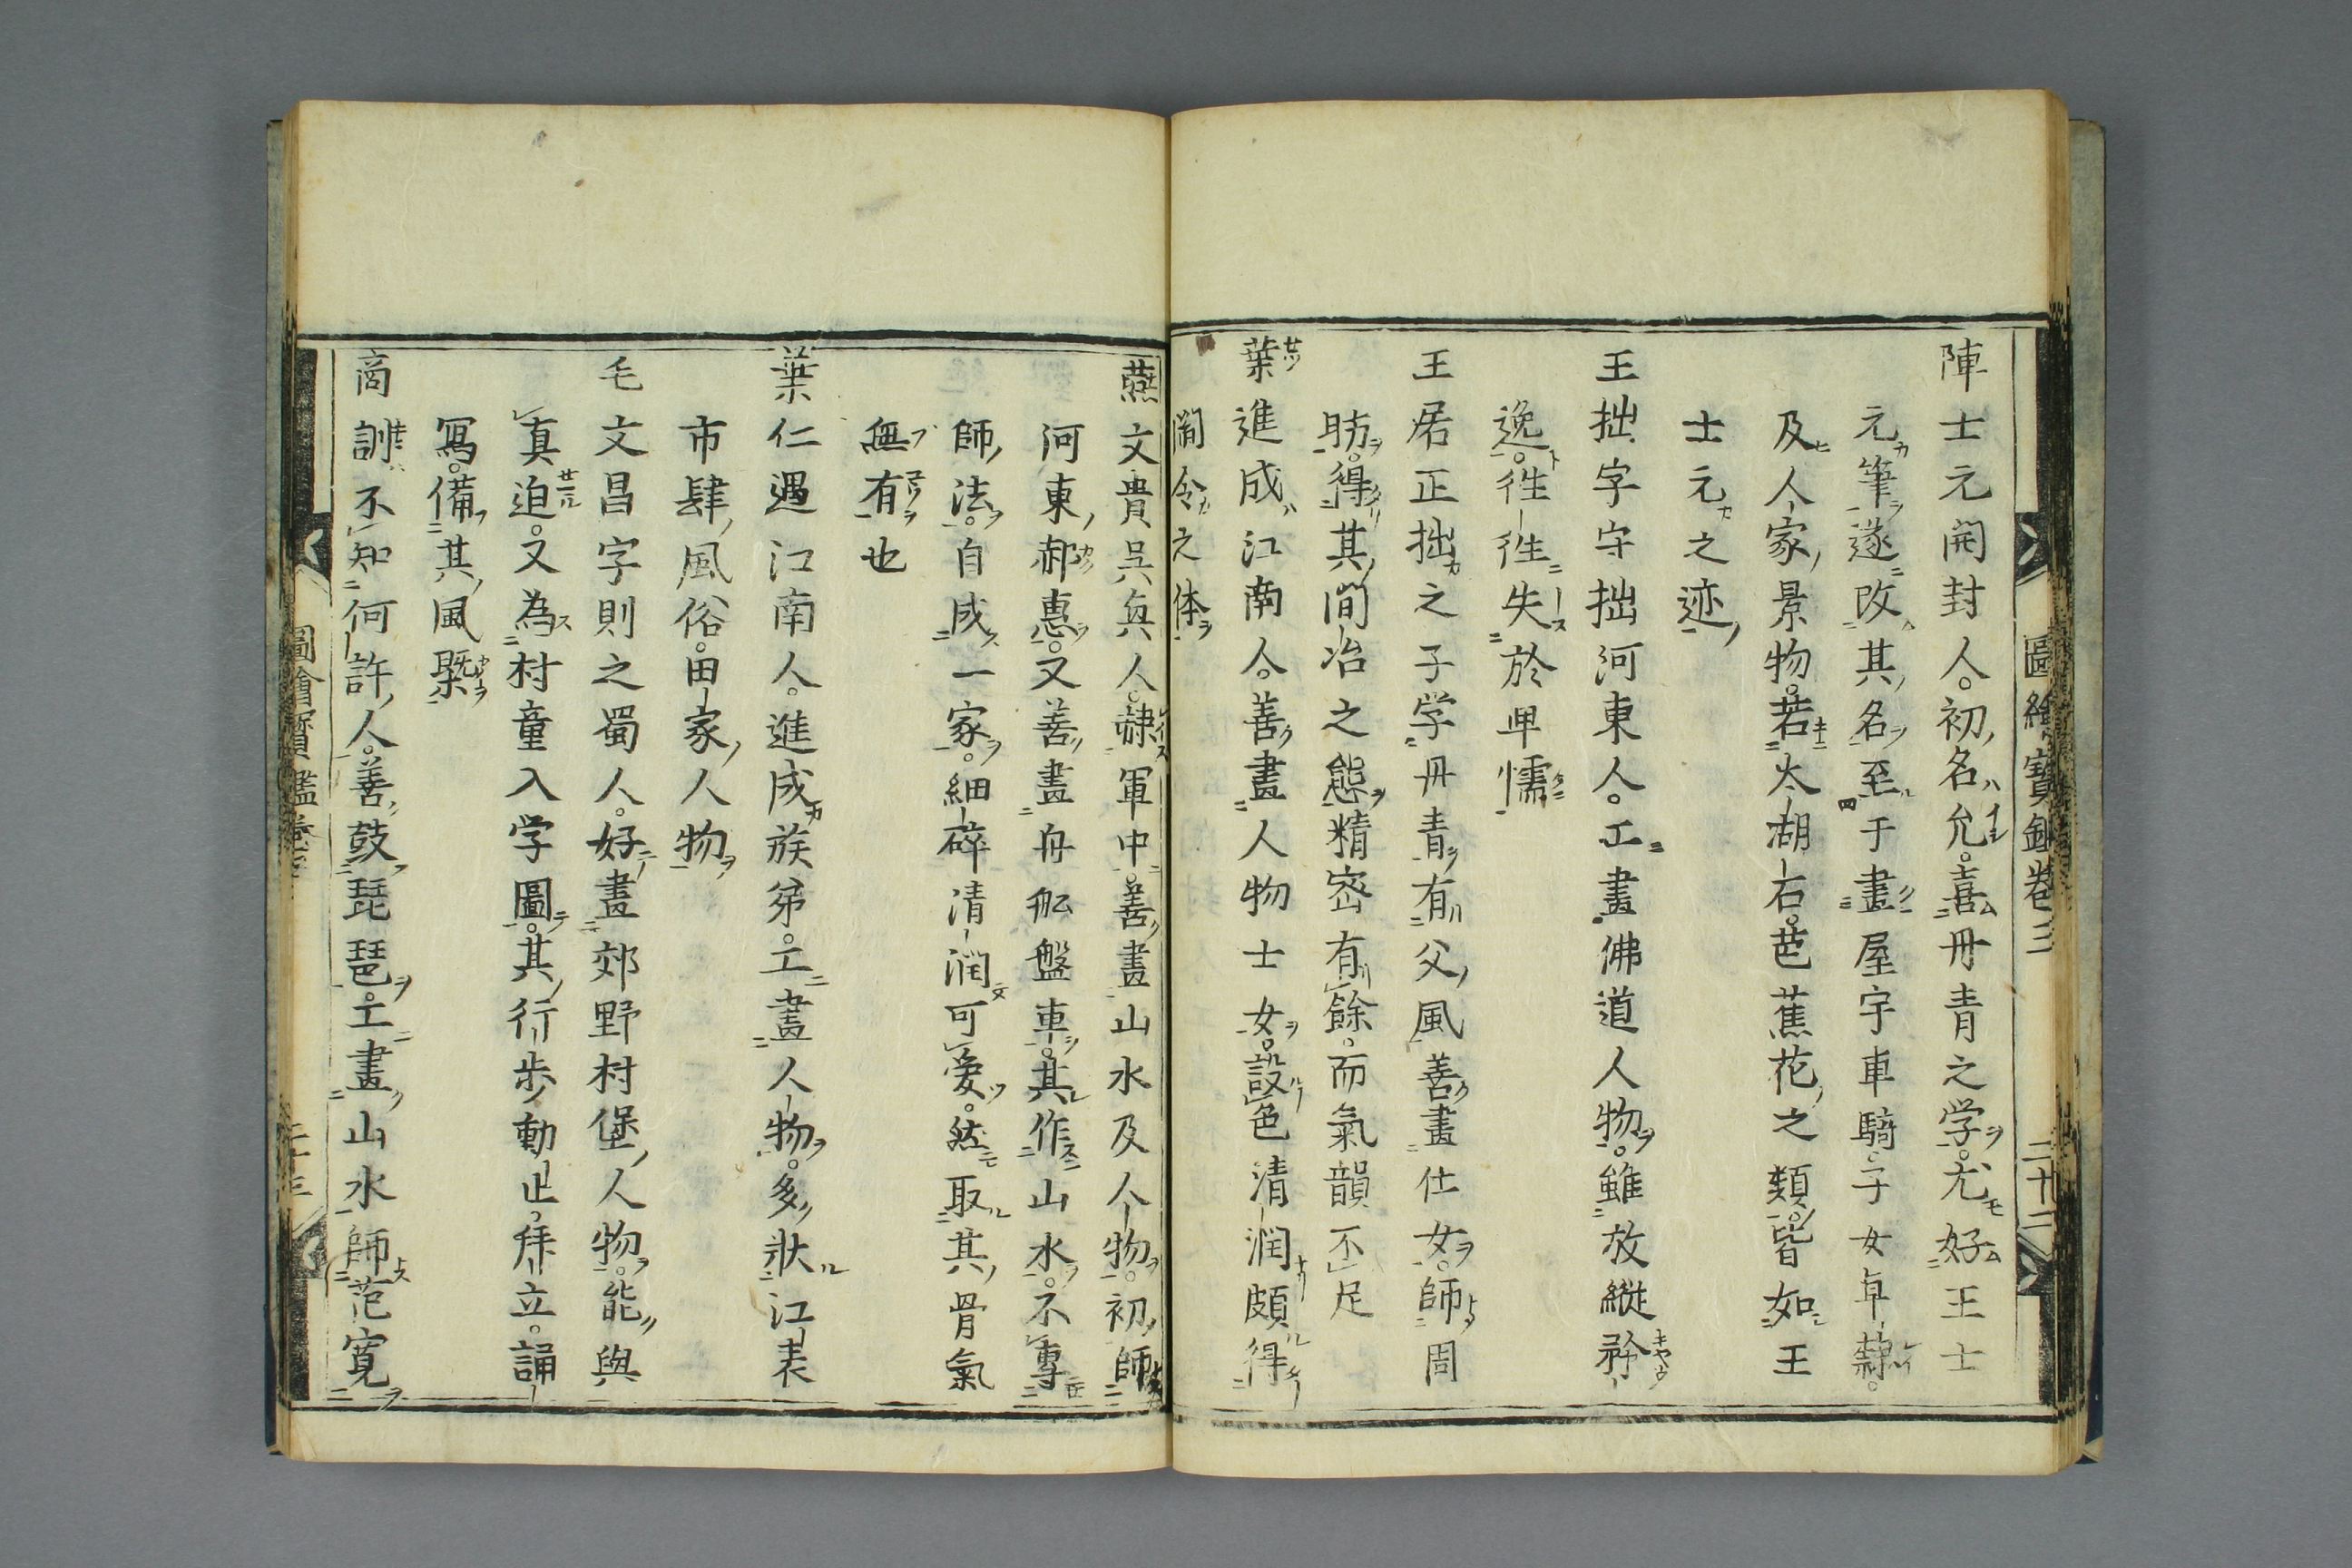 圖繪寶鑑卷三 二十二
陣士元開封人。初名允。喜丹青之学。尤好王士
元筆遂改其名至于畫屋宇車騎子女皁隷。
及人家景物。若太湖石芭蕉花之類。皆如王
士元之迹
王拙字守拙河東人。工畫佛道人物。雖放縱矜
逸。徃徃失於卑懦
王居正拙之子学丹青有父風善畫仕女。師周
昉。得其閒冶之態精密有餘。而氣韻不足
葉進成江南人。善畫人物士女。設色清润頗得
閻令之体
燕文貴吳興人。隷軍中。善畫山水及人物。初師
河東郝惠。又善畫舟舩盤車。其作山水。不專
師法。自成一家。細碎清潤可愛。然取其骨氣
無有也
葉仁遇江南人。進成族弟。工畫人物。多狀江表
市肆風俗。田家人物
毛文昌字則之蜀人。好畫郊野村堡人物。能與
真迫。又為村童入学圖。其行步動止。拜立。誦
寫。備其風槩
商訓不知何許人。善鼓琵琶。工畫山水師范寛
圖繪寶鑑卷三 二十三